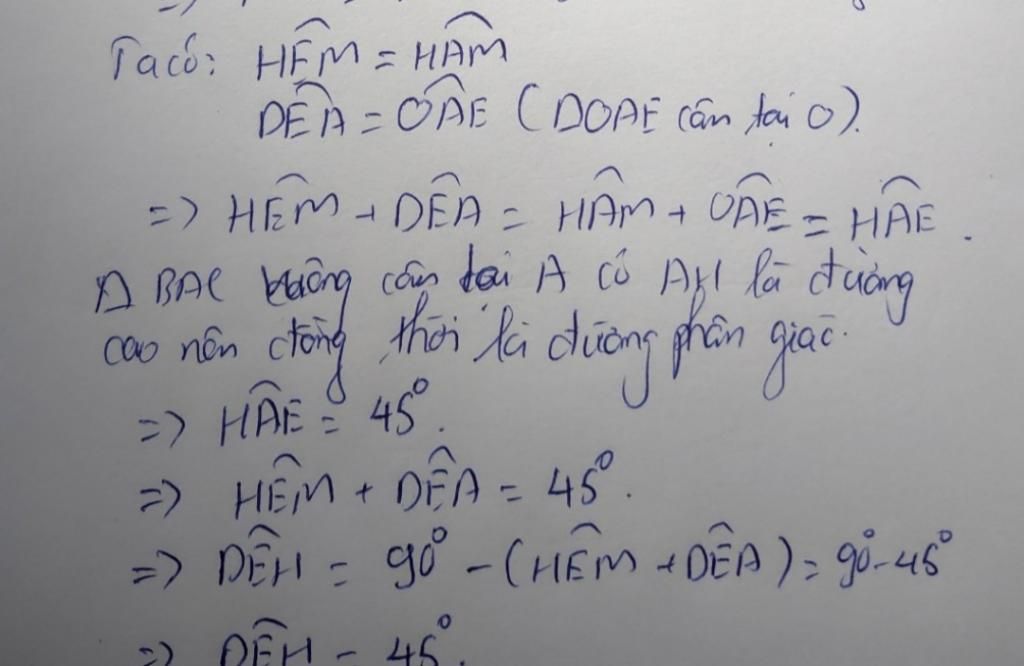 Ta có: HÊM = HÂM
DÊA = OÂE (DOAE cân tại O).
=> HÊM + DÊA = HÂM + OÂE = HÂE.
Δ BAC vuông cân tại A có AH là đường
cao nên đồng thời là đường phân giác.
=> HÂE = 45°.
=> HÊM + DÊA = 45°.
=> DÊH = 90° - (HÊM + DÊA) = 90° - 45°
=> DÊH = 45°.